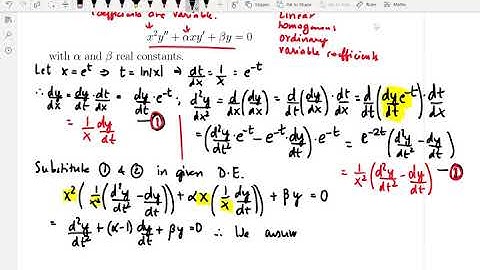 coefficients are variable.
linear
homogenous
ordinary
variable coefficients
x²y″ + αxy′ + βy = 0
with α and β real constants.
Let x = e^t ⇒ t = ln|x| ⇒ dt/dx = 1/x = e^-t
∴ dy/dx = dy/dt · dt/dx = dy/dt · e^-t, d²y/dx² = d/dx(dy/dx) = d/dt(dy/dx) · dt/dx = d/dt(dy/dt e^-t) · dt/dx
= 1/x dy/dt —①
= (d²y/dt² · e^-t - e^-t · dy/dt) · e^-t = e^-2t (d²y/dt² - dy/dt)
= 1/x² (d²y/dt² - dy/dt) —①
Substitute ① & ② in given D.E.
x² (1/x² (d²y/dt² - dy/dt)) + αx (1/x dy/dt) + βy = 0
= d²y/dt² + (α-1) dy/dt + βy = 0 ∴ We assum